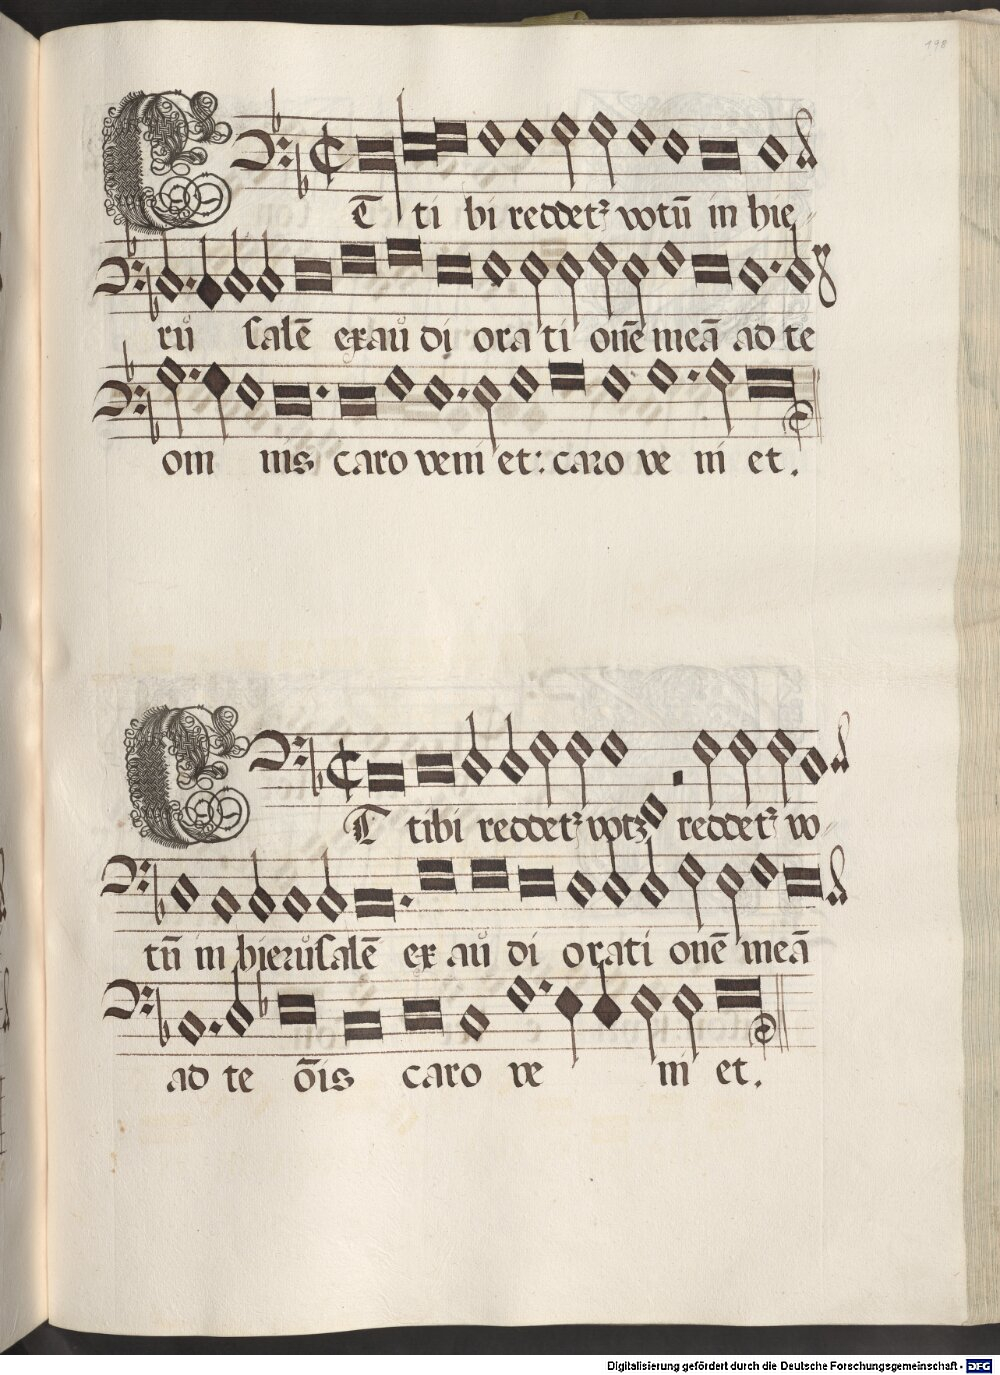 198
Et ti bi reddetꝛ votū in hie
rů salē exau di ora ti onē meā ad te
om nis caro veni et: caro ve ni et.
Et tibi reddetꝛ votꝫ reddetꝛ vo
tū in hierůsalē ex aů di orati onē meā
ad te ōis caro ve ni et.
Digitalisierung gefördert durch die Deutsche Forschungsgemeinschaft - DFG